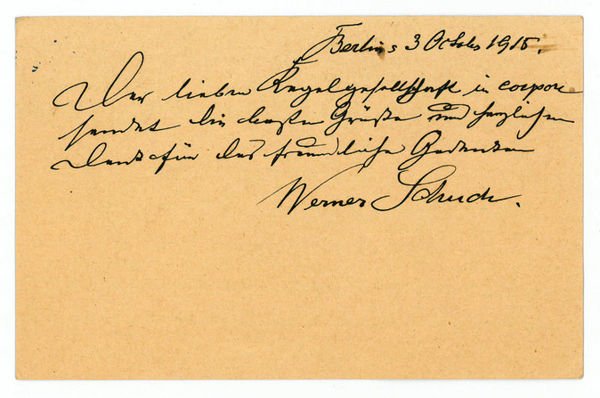 Berlin 3 October 1915.
Der lieben Kegelgesellschaft in corpore
sendet die besten Grüße und herzlichen
Dank für das freundliche Gedenken
Werner Schuch.